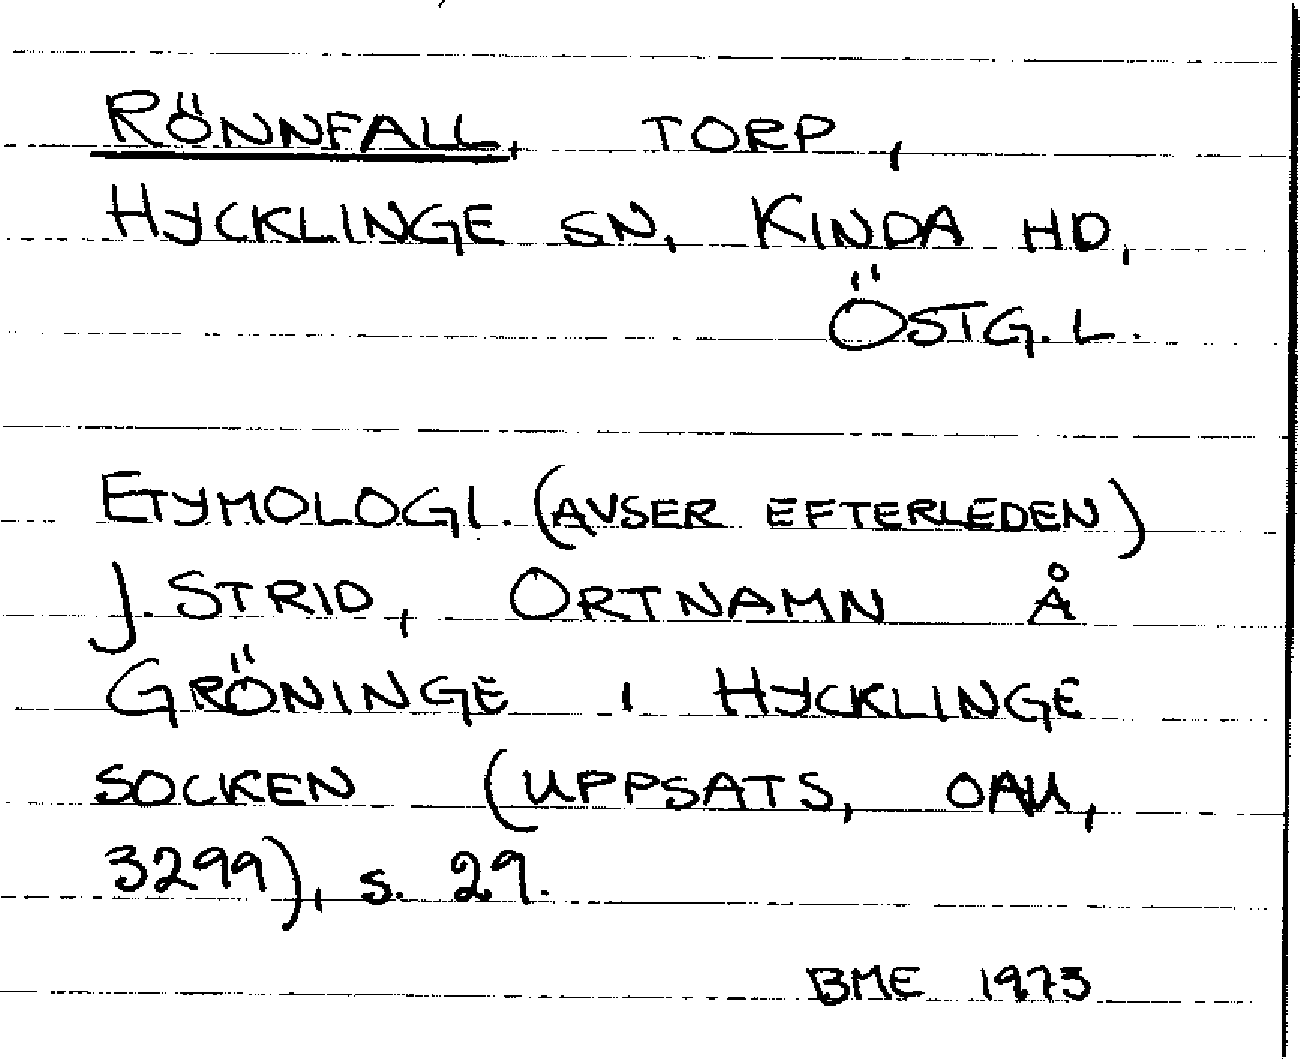 RÖNNFALL, TORP,
HYCKLINGE SN, KINDA HD,
ÖSTG. L.
ETYMOLOGI. (AVSER EFTERLEDEN)
J. STRID, ORTNAMN Å
GRÖNINGE I HYCKLINGE
SOCKEN (UPPSATS, OAU,
3299), s. 29.
BME 1973